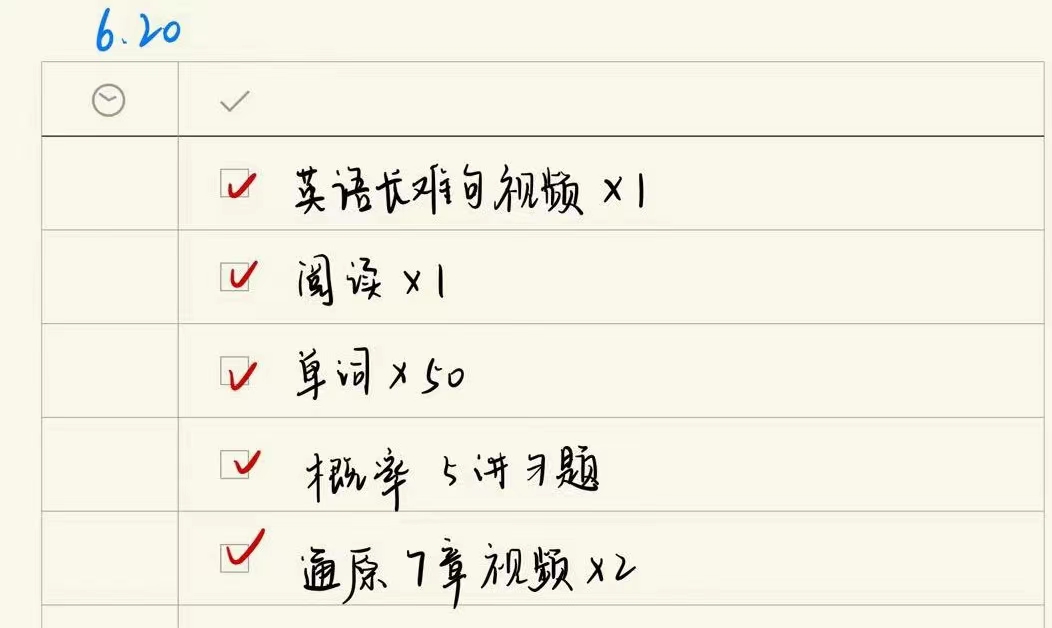 6.20
英语长难句视频 ×1
阅读 ×1
单词 × 50
概率 5讲习题
通原 7章视频 ×2